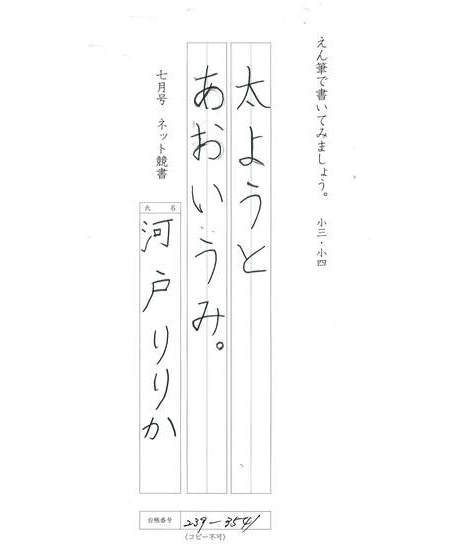 えん筆で書いてみましょう。 小三・小四
太ようと
あおいうみ。
七月号 ネット競書
氏名
河戸りりか
台帳番号 239-3541
(コピー不可)